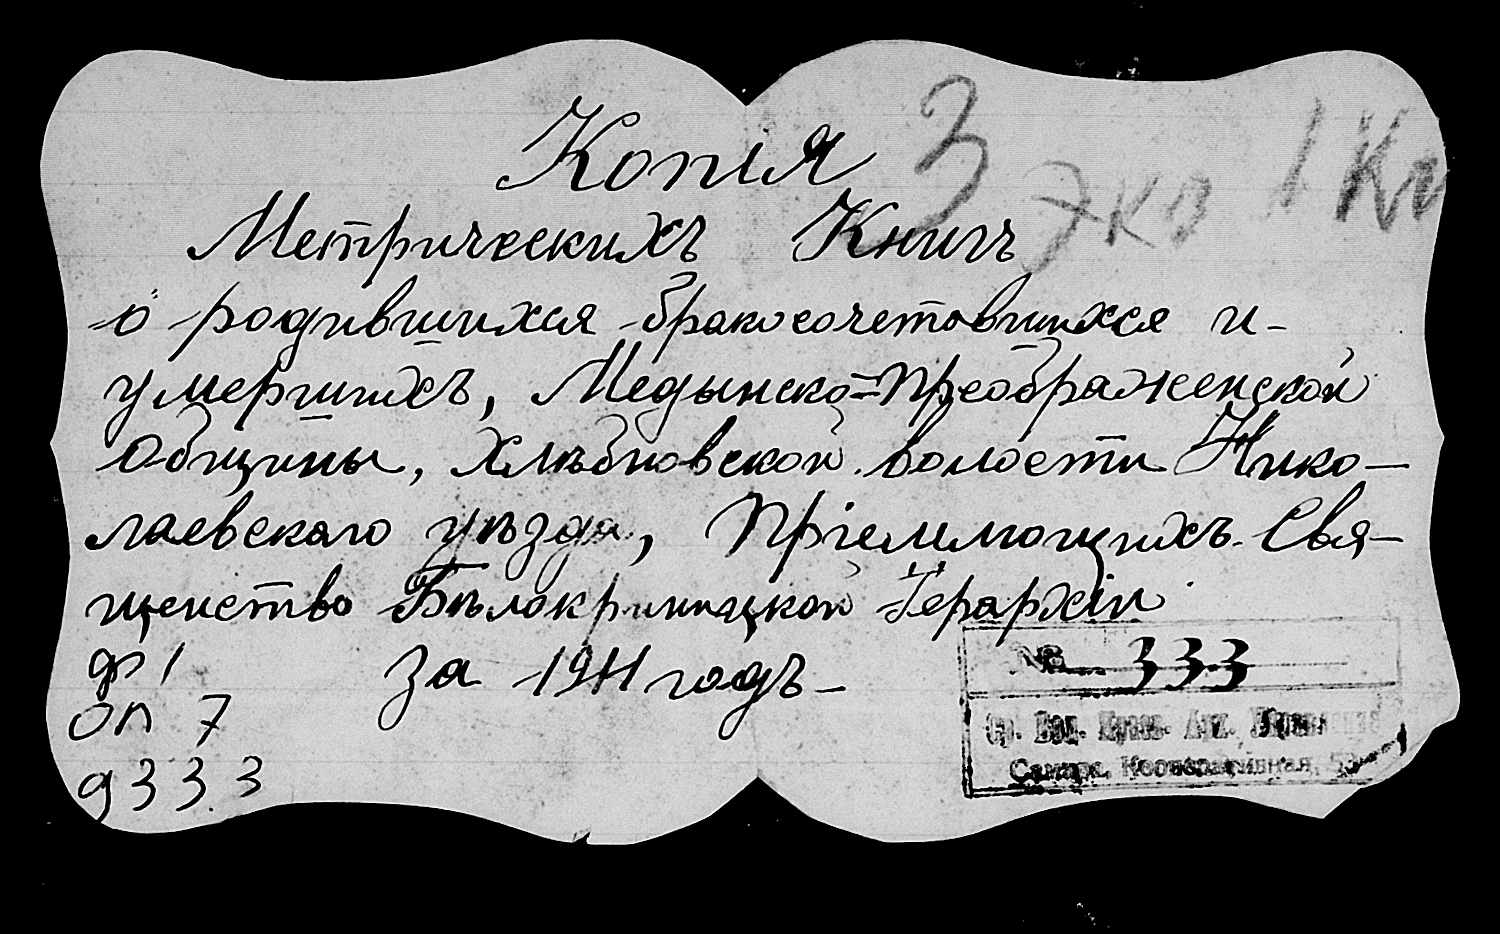 Копія
3 экз 1 Кн
Метрическихъ Книгъ
о родившихся бракосочетовшихся и-
умершихъ, Медынско=Преображенской
Общины, Хлѣбновской волости Нико-
лаевскаго уѣзда, Пріемлющихъ Свя-
щенство Бѣлокриницкой Іерархіи
за 1911 годъ-
ф 1
оп 7
д 333
№ 333
Ср. Вол. Краев. Арх. Управление
Самара, Кооперативная,